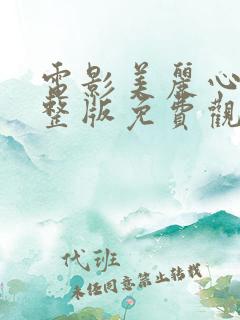 電影美麗心
整版免費觀
代班
未经同意禁止转载